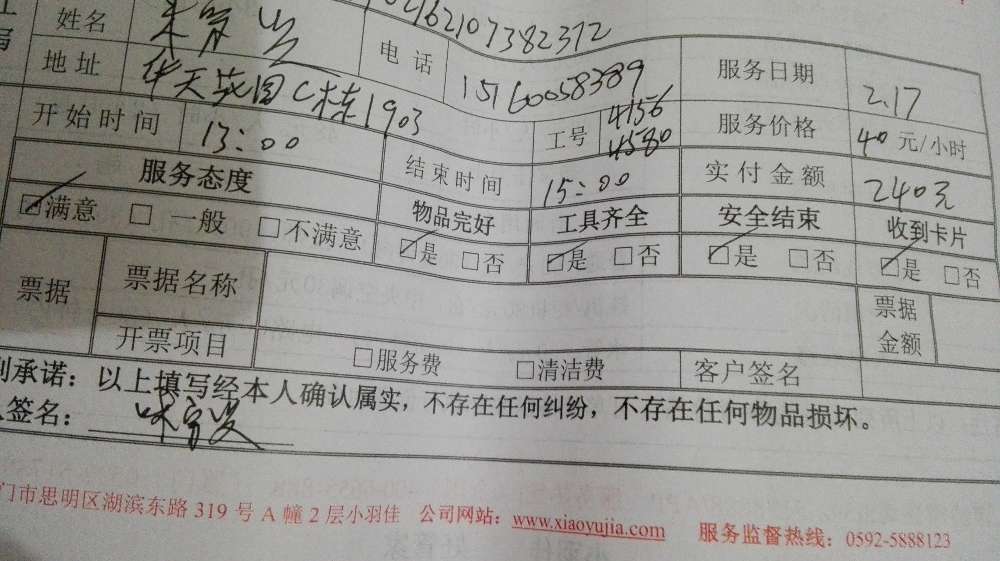 02162107382312
姓名 电话 15160058389 服务日期 2.17
地址 华天花园C栋1903 工号 4156 4580 服务价格 40元/小时
开始时间 13:00 结束时间 15:00 实付金额 240元
服务态度 物品完好 工具齐全 安全结束 收到卡片
☑满意 □一般 □不满意 ☑是 □否 ☑是 □否 ☑是 □否 ☑是 □否
票据 票据名称 票据金额
开票项目 □服务费 □清洁费 客户签名
承诺：以上填写经本人确认属实，不存在任何纠纷，不存在任何物品损坏。
签名：
门市思明区湖滨东路 319 号 A 幢 2 层小羽佳 公司网站：www.xiaoyujia.com 服务监督热线：0592-5888123